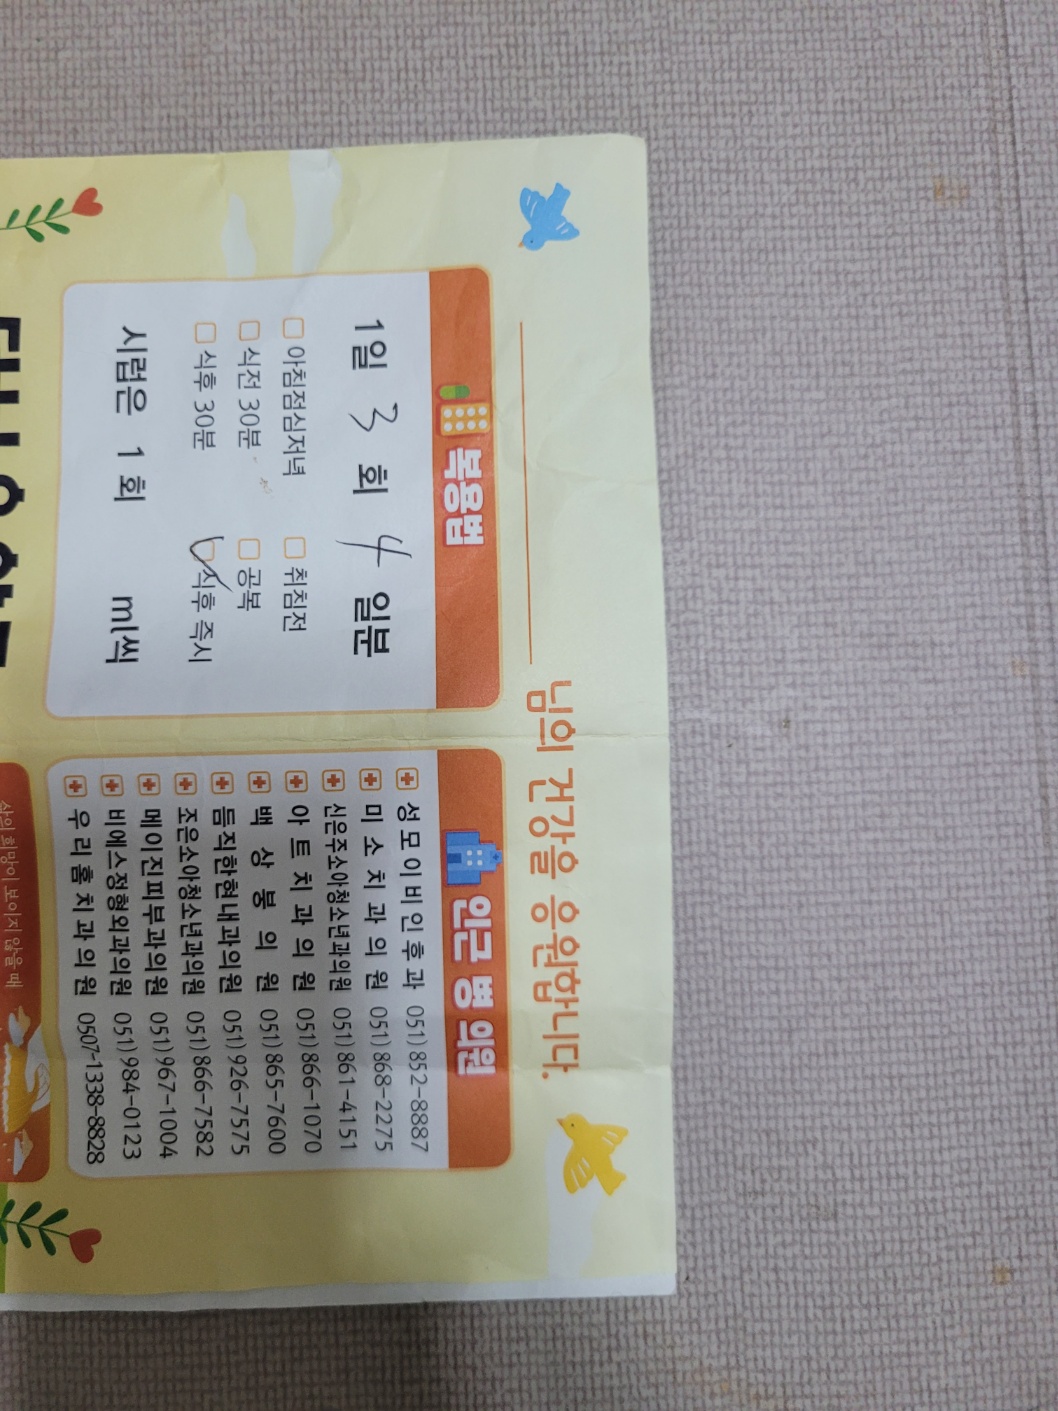 님의 건강을 응원합니다.
복용법
1일 3 회 4 일분
아침점심저녁 취침전
식전 30분 공복
식후 30분 식후 즉시
시럽은 1 회 ml씩
인근 병 의원
성모이비인후과 051) 852-8887
미소치과의원 051) 868-2275
신은주소아청소년과의원 051) 861-4151
아트치과의원 051) 866-1070
백상봉의원 051) 865-7600
듬직한현내과의원 051) 926-7575
조은소아청소년과의원 051) 866-7582
메이진피부과의원 051) 967-1004
비에스정형외과의원 051) 984-0123
우리홈치과의원 0507-1338-8828
삶의 희망이 보이지 않을 때